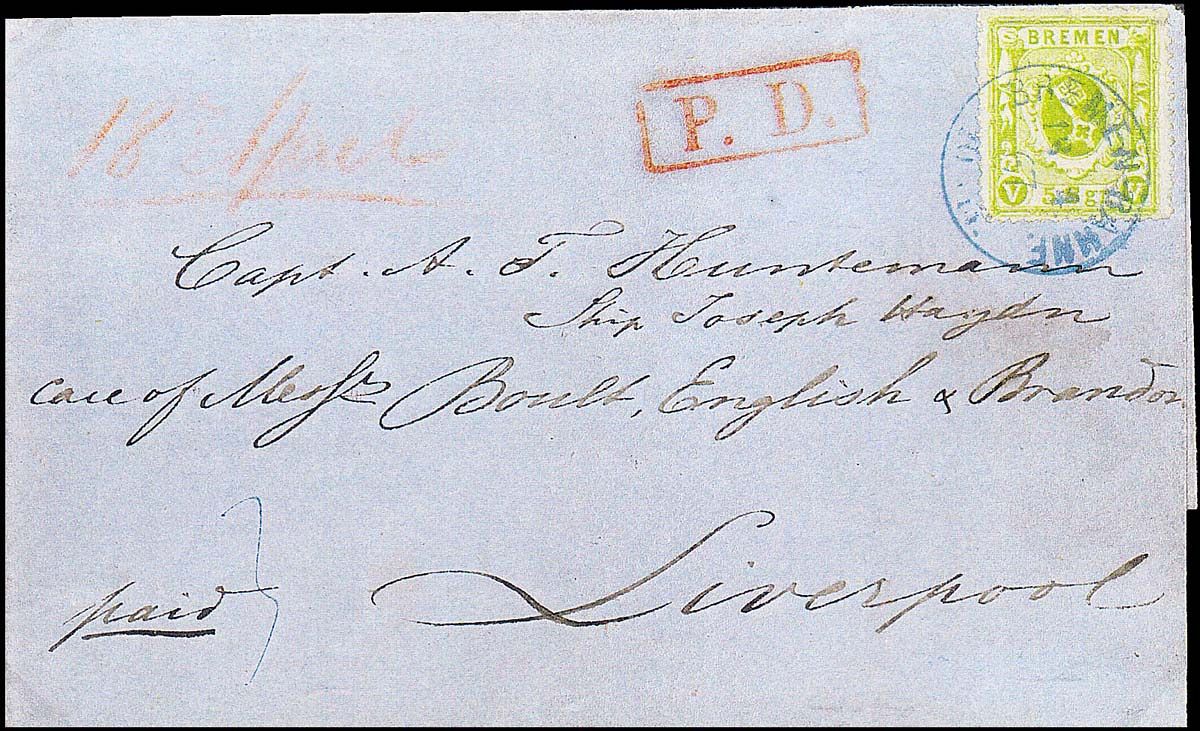 18 April
P. D.
BREMEN
V 5 Sgr V
BREMEN BAHNHF.
Capt. A. T. Huntemann
Ship Joseph Haydn
care of Messrs Boult, English & Brandon
paid
Liverpool